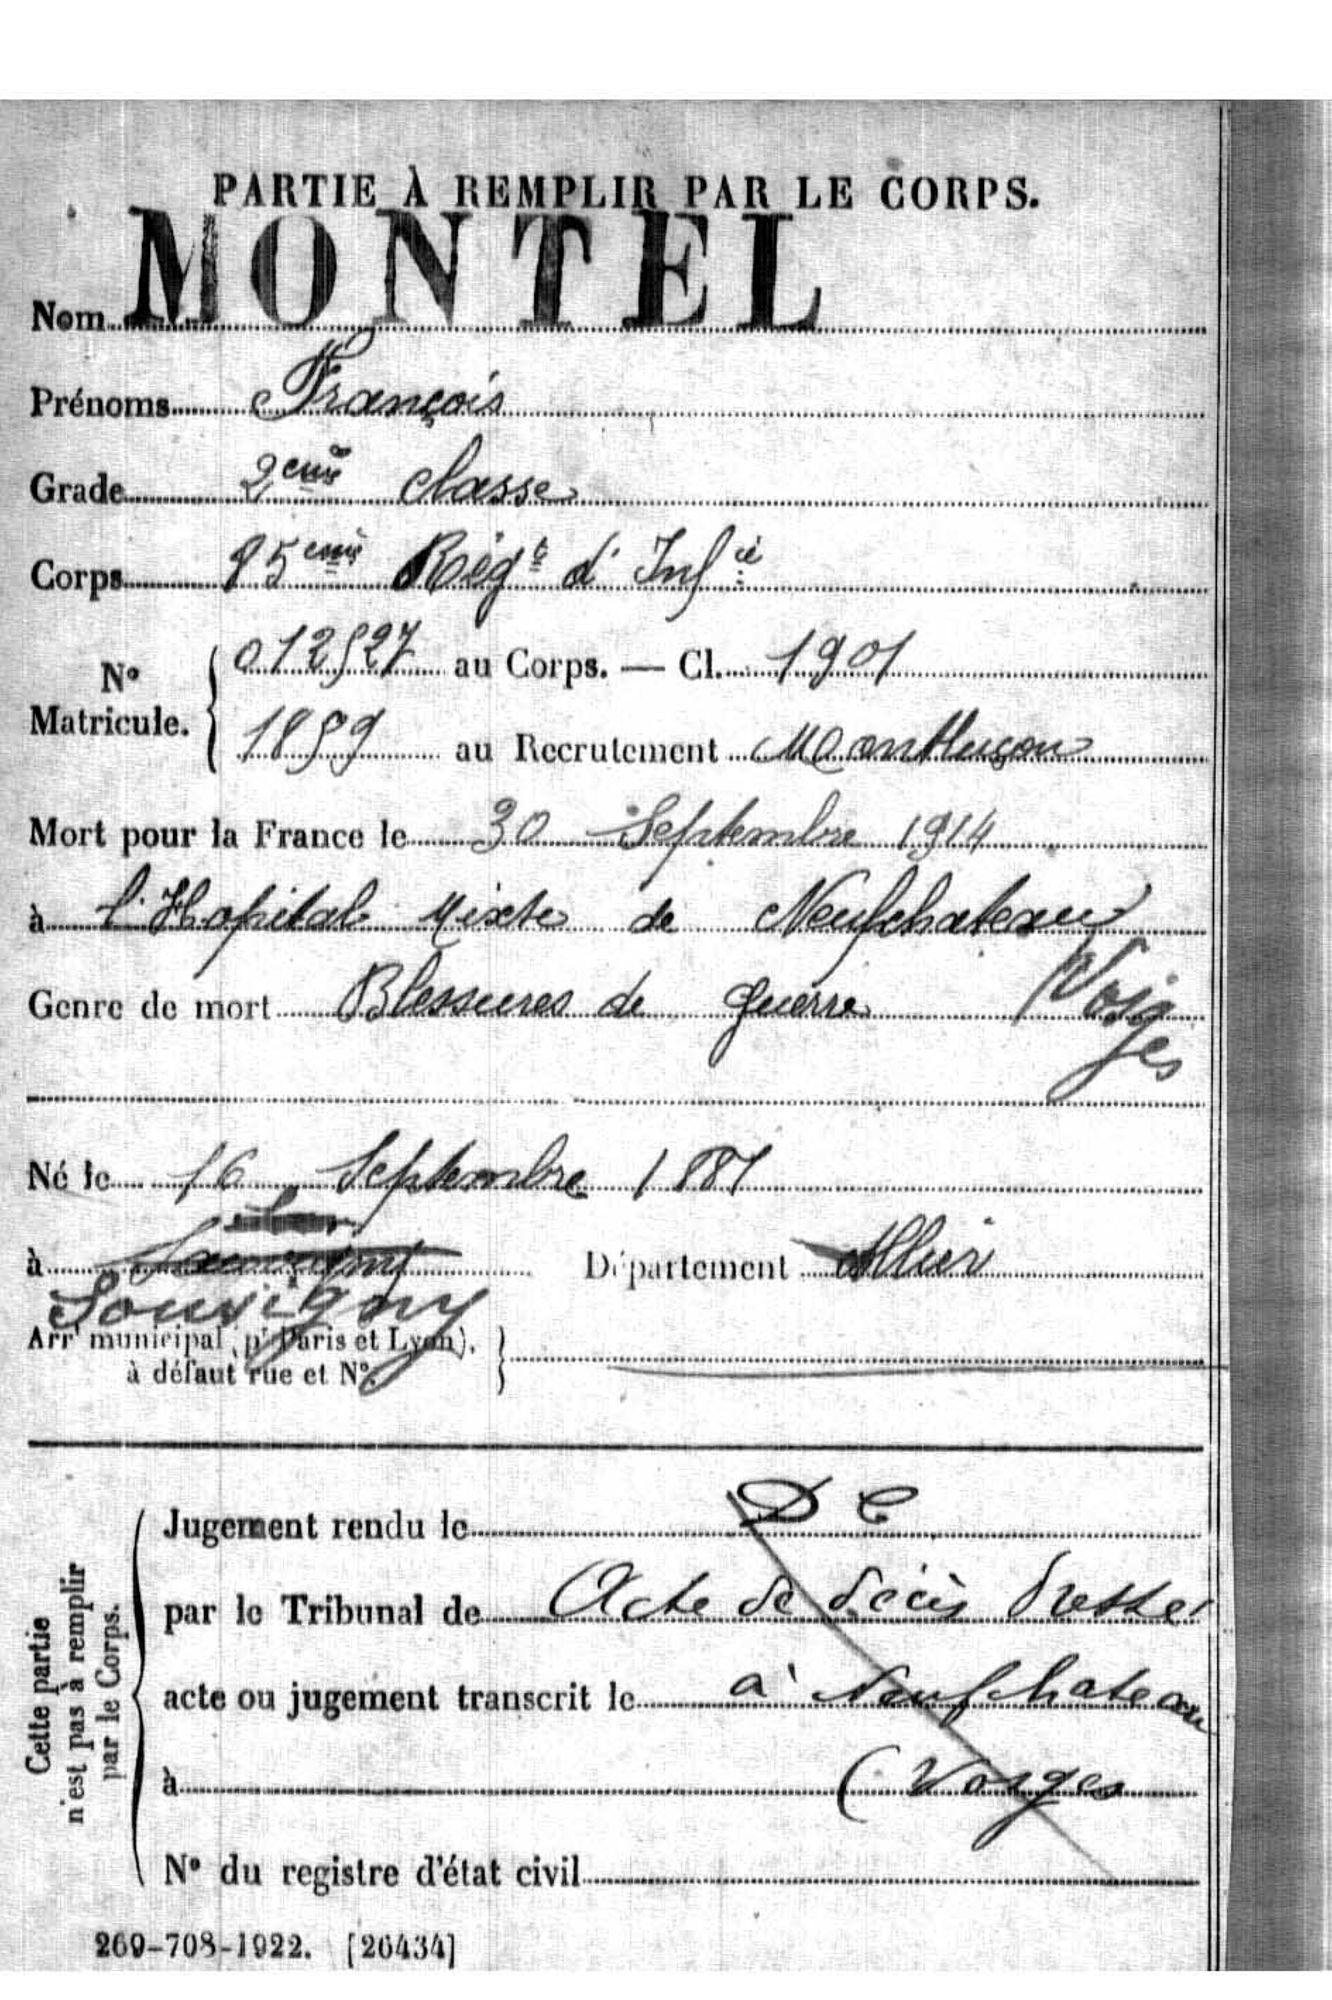 PARTIE À REMPLIR PAR LE CORPS.
Nom MONTEL
Prénoms François
Grade 2ème classe
Corps 95ème Régt d'Infie
No Matricule. 012527 au Corps. — Cl. 1901
1859 au Recrutement Montluçon
Mort pour la France le 30 Septembre 1914
à l'Hopital Mixte de Neufchateau
Vosges
Genre de mort Blessures de guerre
Né le 16 Septembre 1881
à Département Allier
Souvigny
Arrt municipal (pr Paris et Lyon),
à défaut rue et No.
Cette partie
n'est pas à remplir
par le Corps.
Jugement rendu le D C
par le Tribunal de Acte de décès dressé
acte ou jugement transcrit le à Neufchateau
à (Vosges
No du registre d'état civil
269-708-1922. [26434]